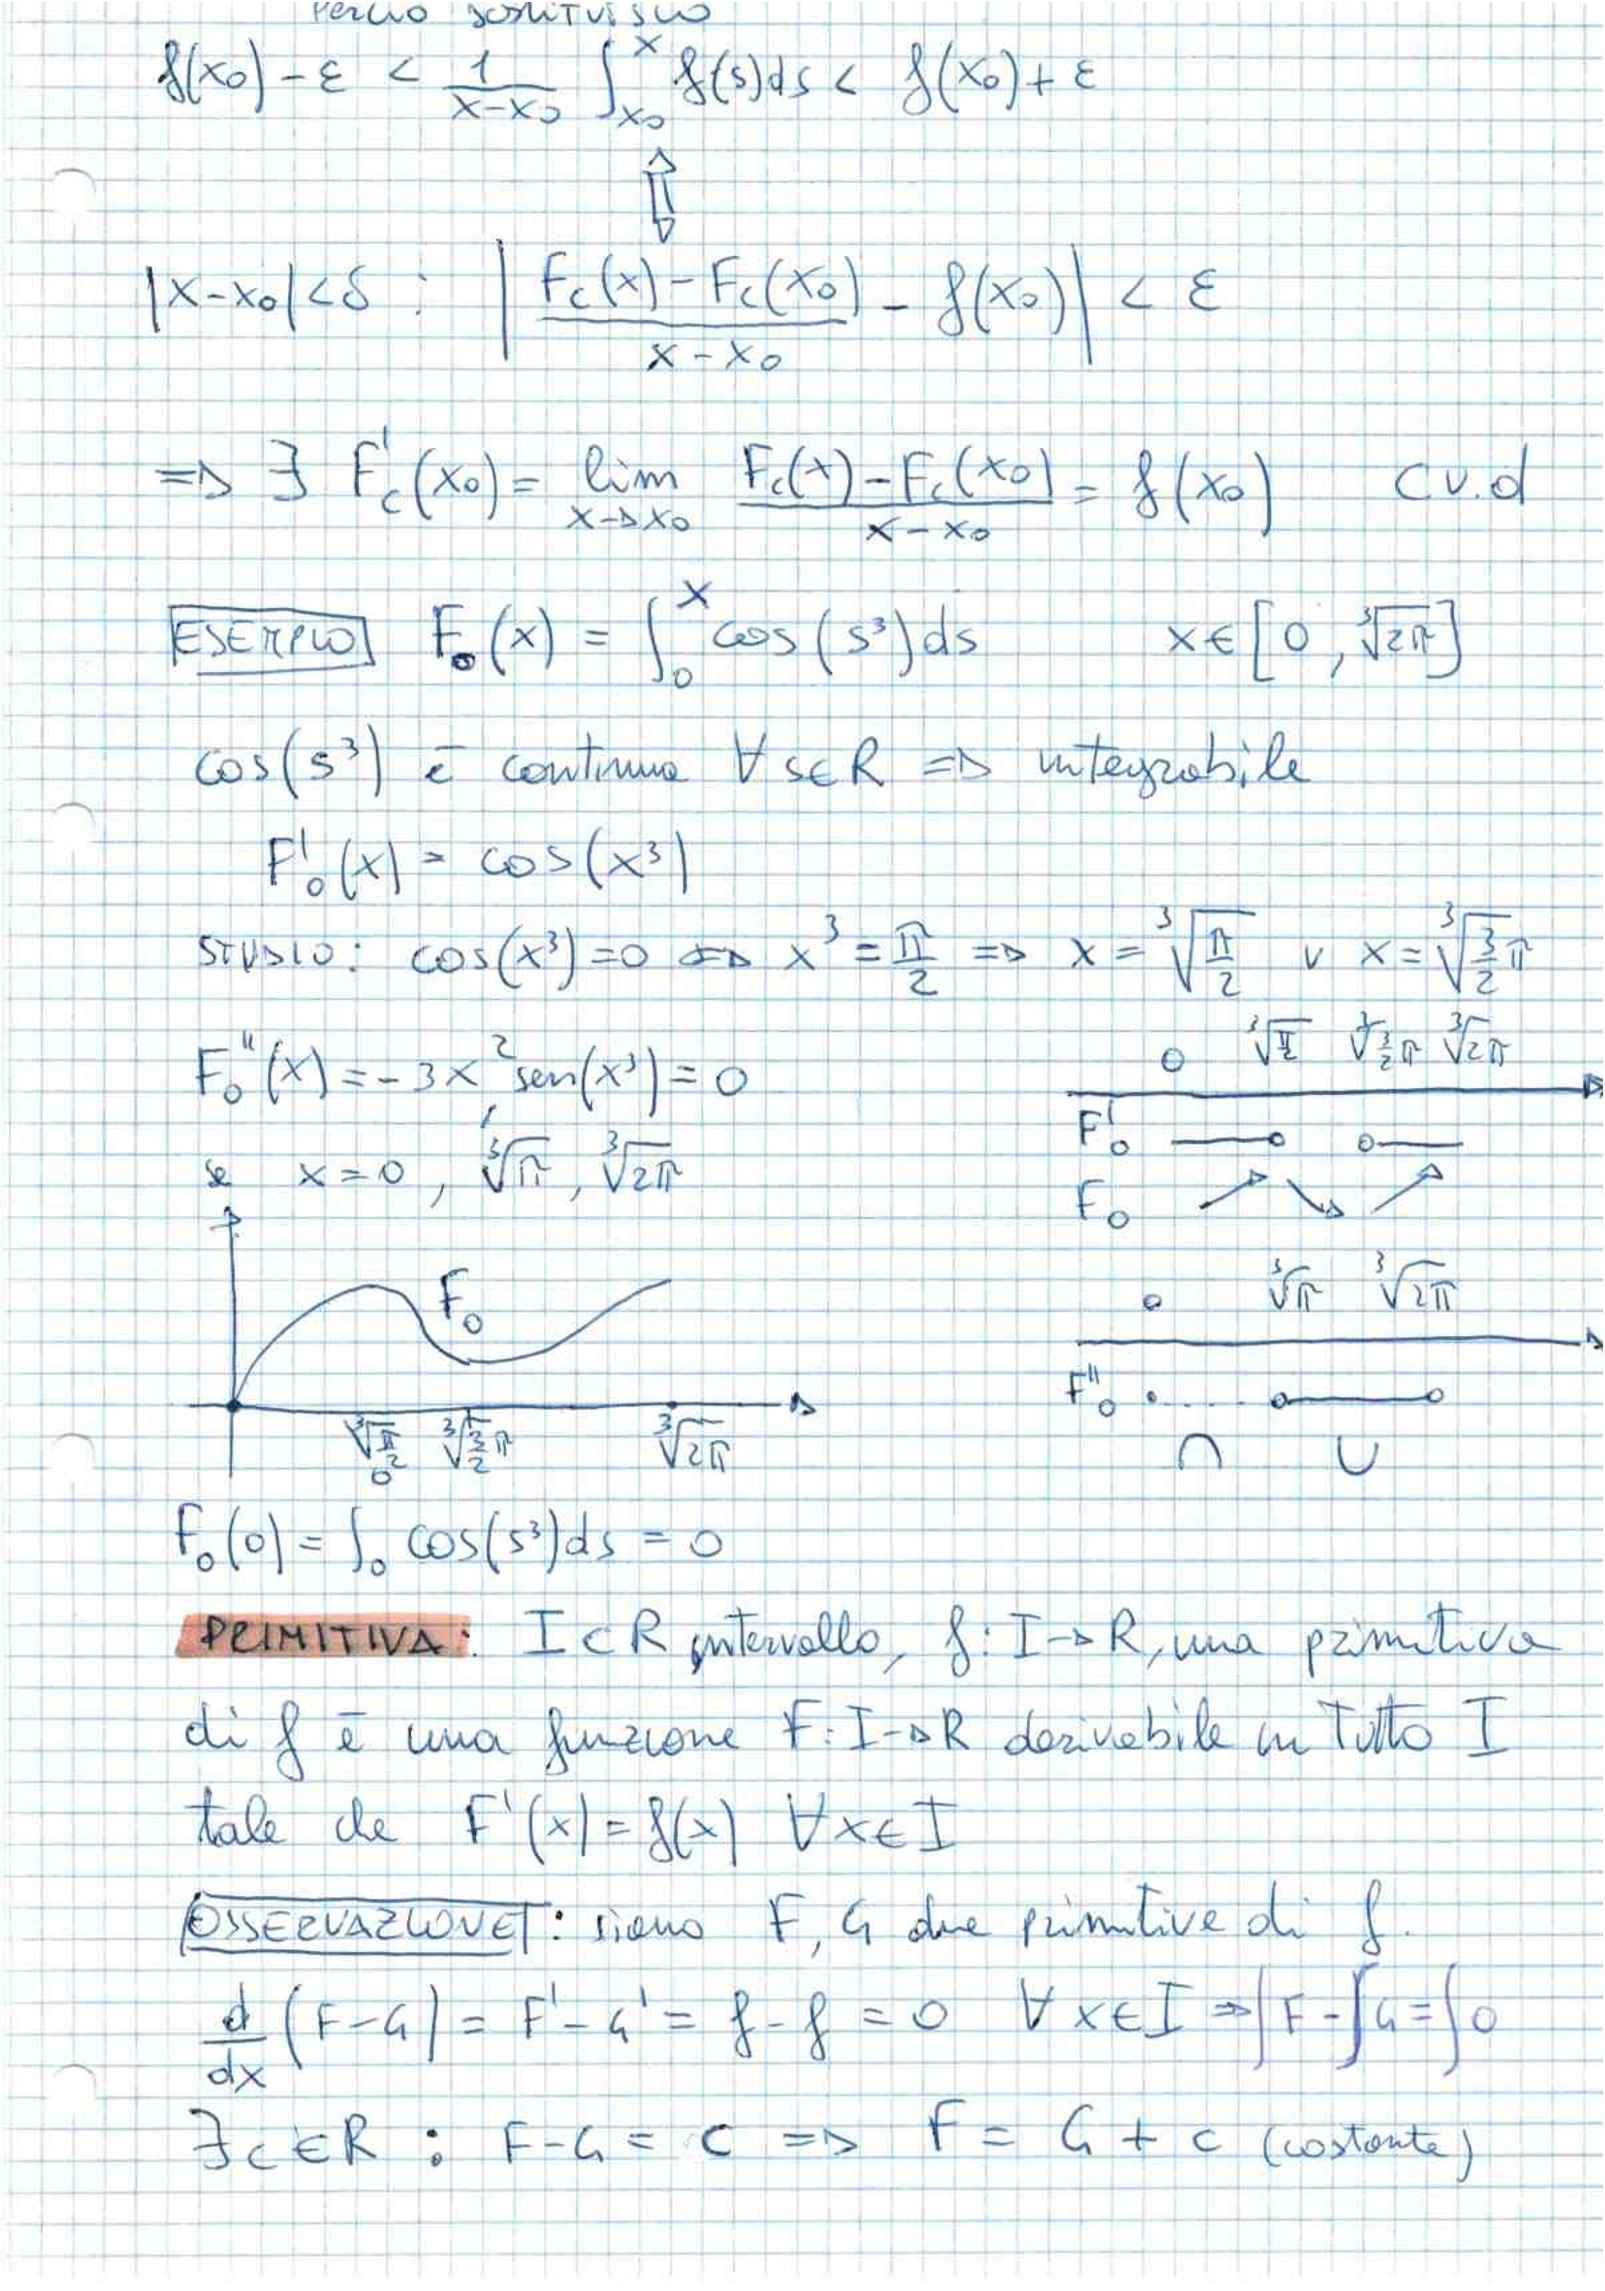 perciò sostituisco
f(x₀) - ε < 1/(x-x₀) ∫_{x₀}^{x} f(s)ds < f(x₀) + ε
⇕
|x-x₀| < δ : | (F_c(x) - F_c(x₀))/(x-x₀) - f(x₀) | < ε
=> ∃ F'_c(x₀) = lim_{x→x₀} (F_c(x) - F_c(x₀))/(x-x₀) = f(x₀) C.V.d
ESEMPIO F₀(x) = ∫_0^x cos(s³)ds x ∈ [0, ∛2π]
cos(s³) è continua ∀ s∈R => integrabile
F'₀(x) = cos(x³)
STUDIO: cos(x³) = 0 <=> x³ = π/2 => x = ∛(π/2) ∨ x = ∛(3/2 π)
0 ∛(π/2) ∛(3/2 π) ∛2π
F₀''(x) = -3x² sen(x³) = 0
F'₀
se x = 0, ∛π, ∛2π
F₀
F₀
0 ∛π ∛2π
F''₀
∩ ∪
∛(π/2) ∛(3/2 π) ∛2π
0
F₀(0) = ∫₀ cos(s³)ds = 0
PRIMITIVA: I⊂R intervallo, f: I→R, una primitiva
di f è una funzione F: I→R derivabile in tutto I
tale che F'(x) = f(x) ∀x∈I
OSSERVAZIONE: siano F, G due primitive di f.
d/dx (F-G) = F' - G' = f - f = 0 ∀ x∈I => ∫F - ∫G = ∫0
∃c∈R : F-G = c => F = G + c (costante)